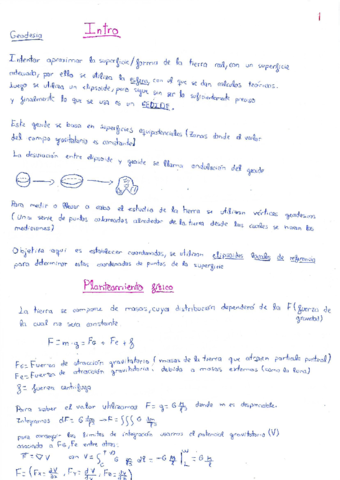 1
Geodesia
Intro
Intentar aproximar la superficie/forma de la tierra real, con un superficie
adecuada, por ello se utiliza la esfera con el que se dan calculos teóricos.
Luego se utiliza un elipsoide, pero sigue sin ser lo suficientemente preciso
y finalmente lo que se usa es un GEOIDE.
Este geoide se basa en superficies equipotenciales (zonas donde el valor
del campo gravitatorio es constante)
La desviación entre elipsoide y geoide se llama ondulación del geoide
Para medir o llevar a cabo el estudio de la tierra se utilizan vértices geodesicos
(Una serie de puntos colocados alrededor de la tierra desde los cuales se hacen las
mediciones)
Objetivo aqui es establecer coordenadas, se utilizan elipsoides locales de referencia
para determinar estas coordenadas de puntos de la superficie
Planteamiento físico
La tierra se compone de masas, cuya distribución dependerá de la F (fuerza de
gravedad)
la cual no sera constante
F = m·g = FG + Fe + q
FG = Fuerza de atracción gravitatoria (masas de la tierra que atraen particula puntual)
Fe = Fuerza de atracción gravitatoria, debida a masas externas (como la luna)
q = fuerza centrifuga
Para saber el valor utilizamos donde m es despreciable.
Integramos
para los limites de integración usamos el potencial gravitatorio (V)
asociado a FG, Fe entre otras: